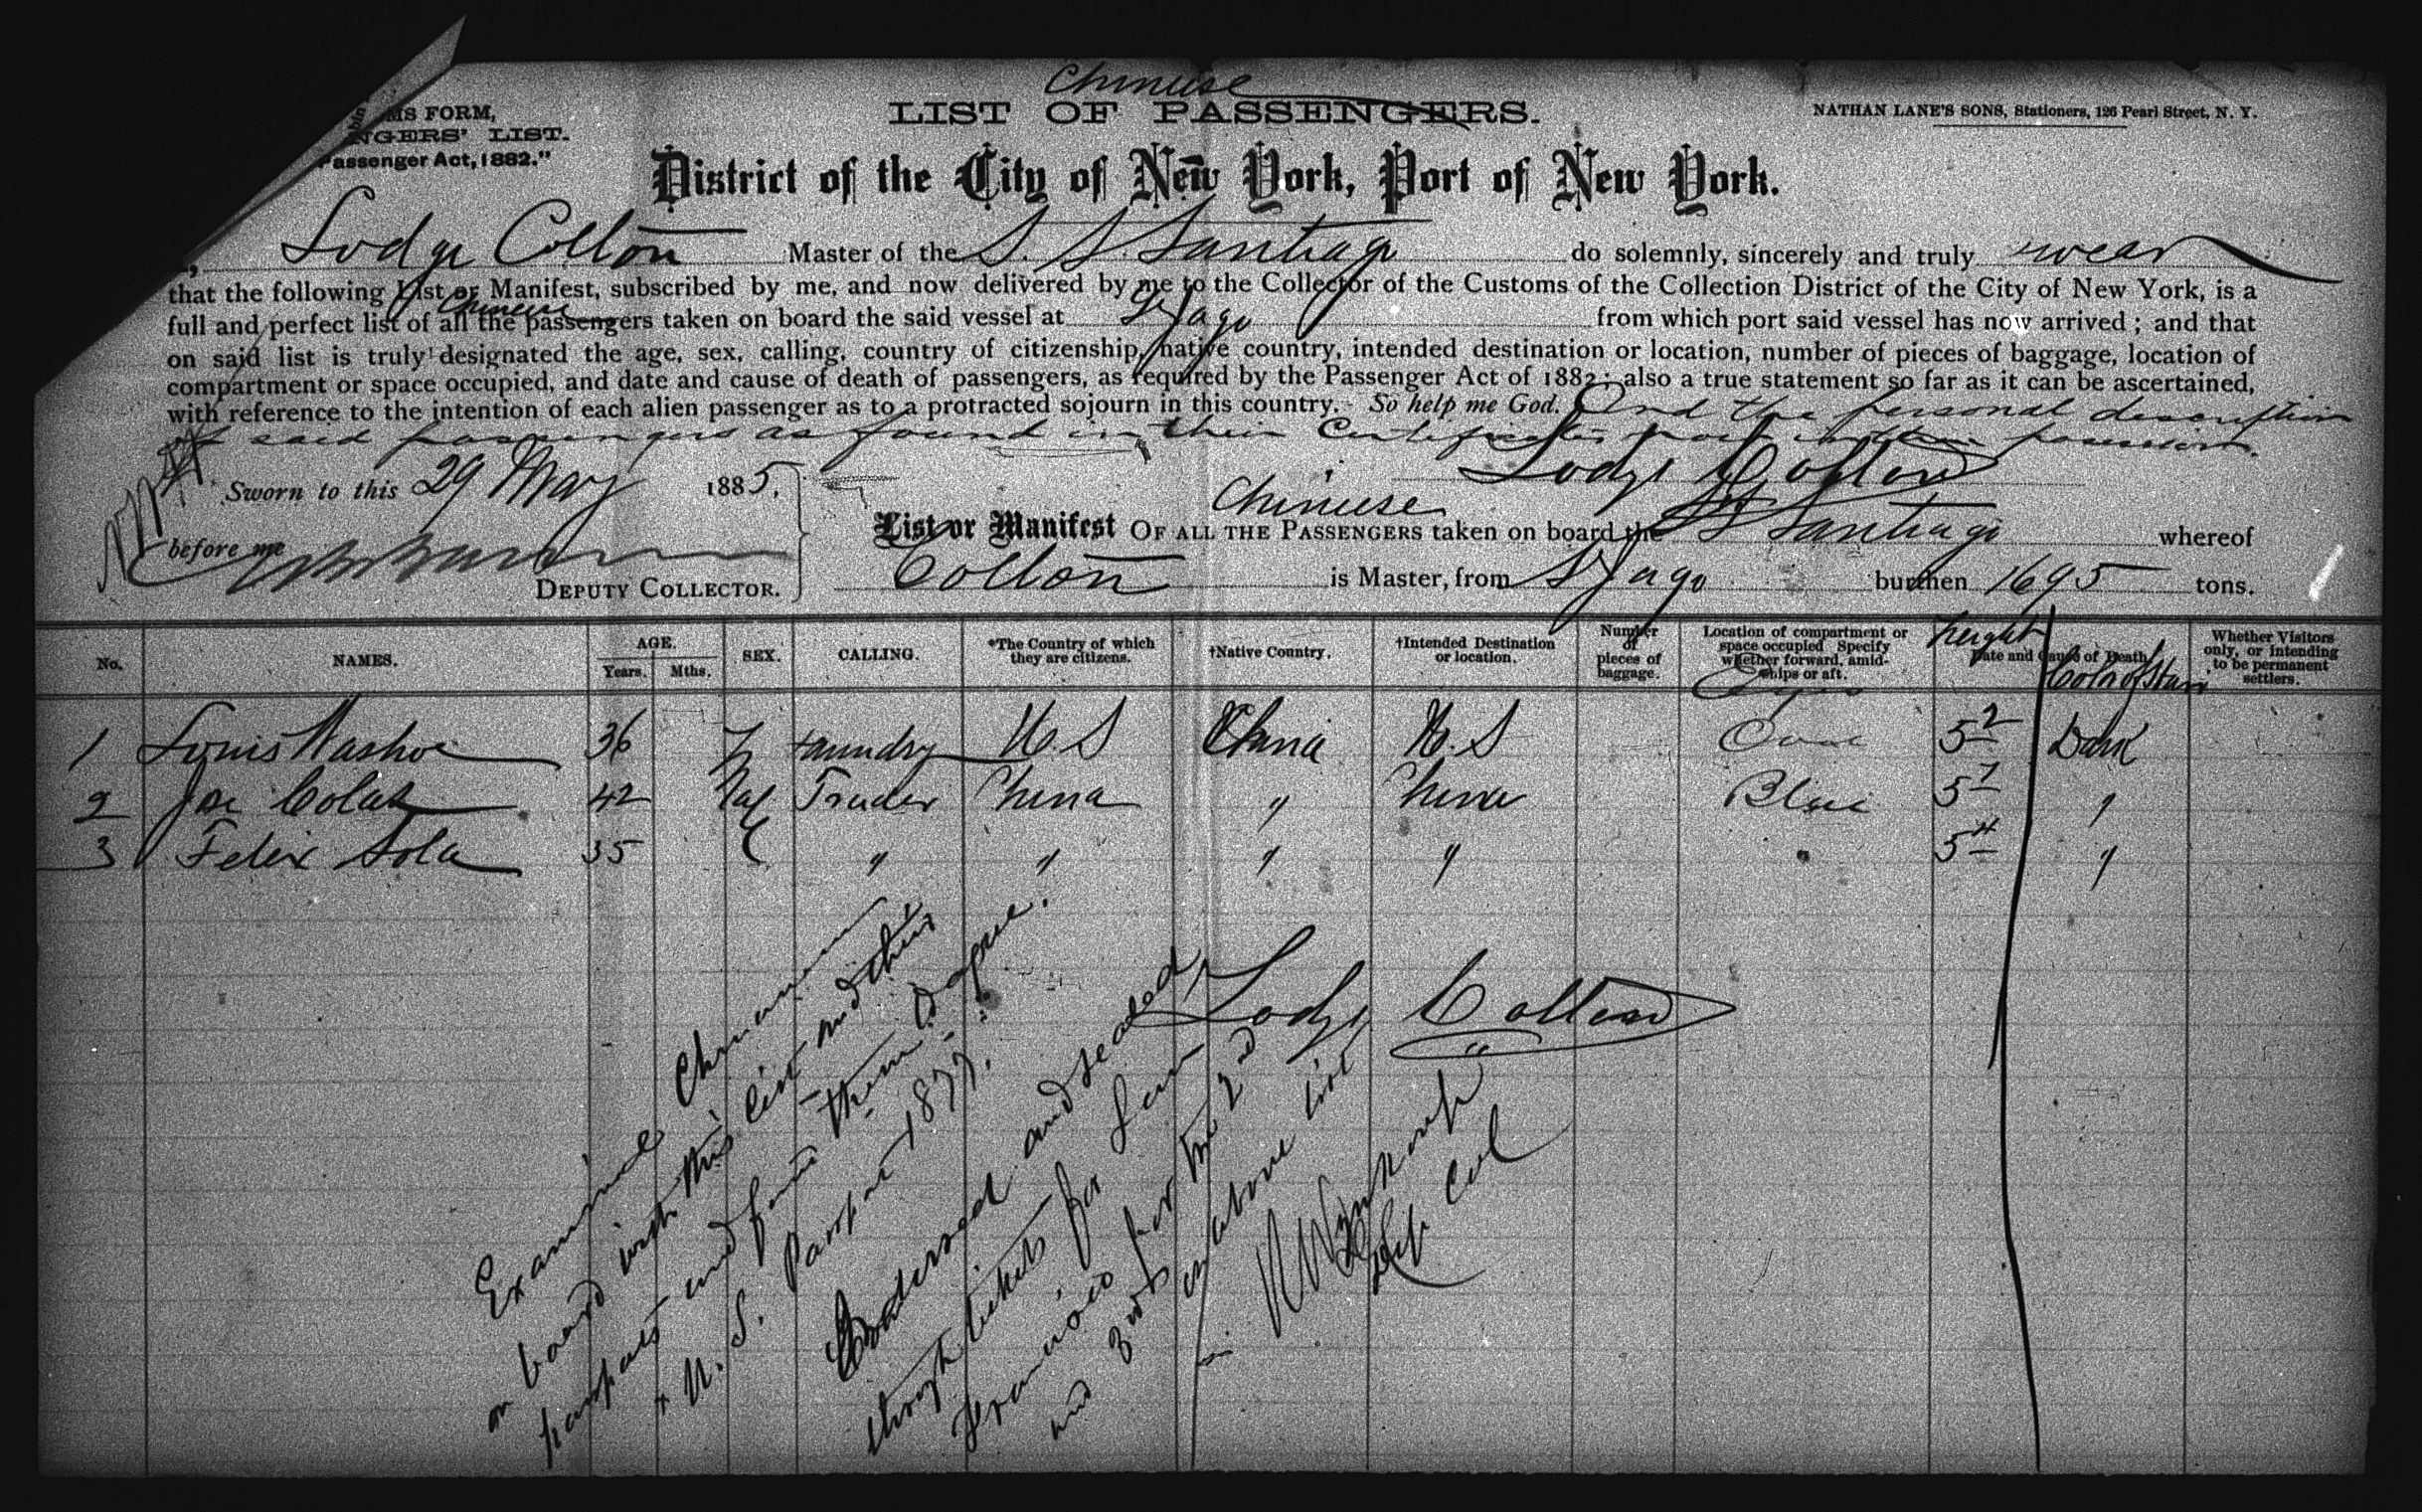 MS FORM,
NGERS' LIST.
Passenger Act, 1882."
Chinese
LIST OF PASSENGERS.
NATHAN LANE'S SONS, Stationers, 126 Pearl Street, N. Y.
District of the City of New York, Port of New York.
Lodge Colton Master of the S. S. Santiago do solemnly, sincerely and truly swear
that the following List or Manifest, subscribed by me, and now delivered by me to the Collector of the Customs of the Collection District of the City of New York, is a
Chinese
full and perfect list of all the passengers taken on board the said vessel at St Jago from which port said vessel has now arrived; and that
on said list is truly designated the age, sex, calling, country of citizenship, native country, intended destination or location, number of pieces of baggage, location of
compartment or space occupied, and date and cause of death of passengers, as required by the Passenger Act of 1882; also a true statement so far as it can be ascertained,
with reference to the intention of each alien passenger as to a protracted sojourn in this country. So help me God. And the personal description
of said passengers as found in their Certificates now in their possession.
Sworn to this 29 May 1885,
Lodge Colton
before me
DEPUTY COLLECTOR.
Chinese
List or Manifest OF ALL THE PASSENGERS taken on board the SS Santiago whereof
Colton is Master, from St Jago burthen 1695 tons.
No. NAMES. AGE. Years. Mths. SEX. CALLING. *The Country of which they are citizens. †Native Country. †Intended Destination or location. Number of pieces of baggage. Location of compartment or space occupied Specify whether forward, amidships or aft. Eyes height Date and Cause of Death Color of Skin Whether Visitors only, or intending to be permanent settlers.
1 Louis Washoe 36 Laundry U. S China U. S 5 2 Dark
2 Jose Colas 42 Trader China " China 5 7 "
3 Felix Sola 35 " " " " " 5 4 "
Lodge Colton
Examined Chinamen
on board with this list and their
passports and find them to agree.
+ U. S. Passport 1877.
Endorsed and sealed
through tickets for San
Francisco for the 2d
and 3rd on above list
R Wynkoop
Dep Col